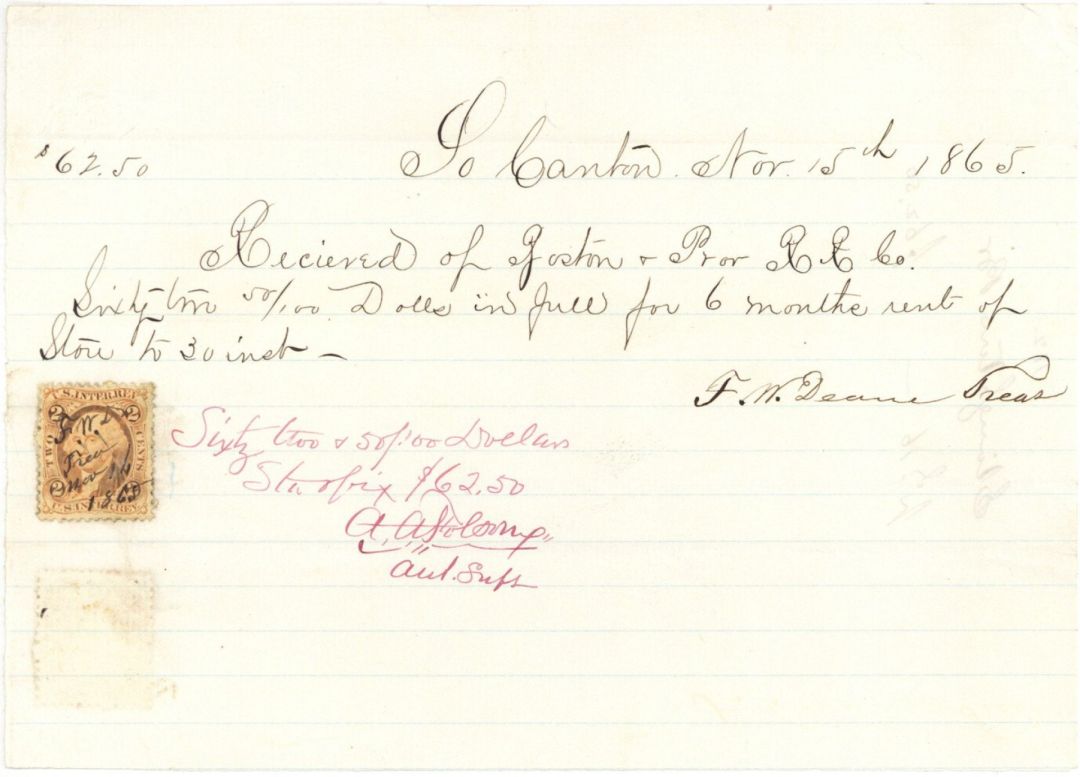 $62.50 So Canton. Nor. 15th 1865.
Recieved of Boston & Prov R R Co.
Sixty-two 50/100 Dolls in full for 6 months rent of
Store to 30 inst —
F. W. Deane Treas
U.S. INTER. REV.
2 2
TWO CENTS
F W D
Treas
Nov 15
1865
2 2
U.S. INTER. REV.
Sixty two & 50/100 Dollars
$62.50
A. A. Folsom
Supt